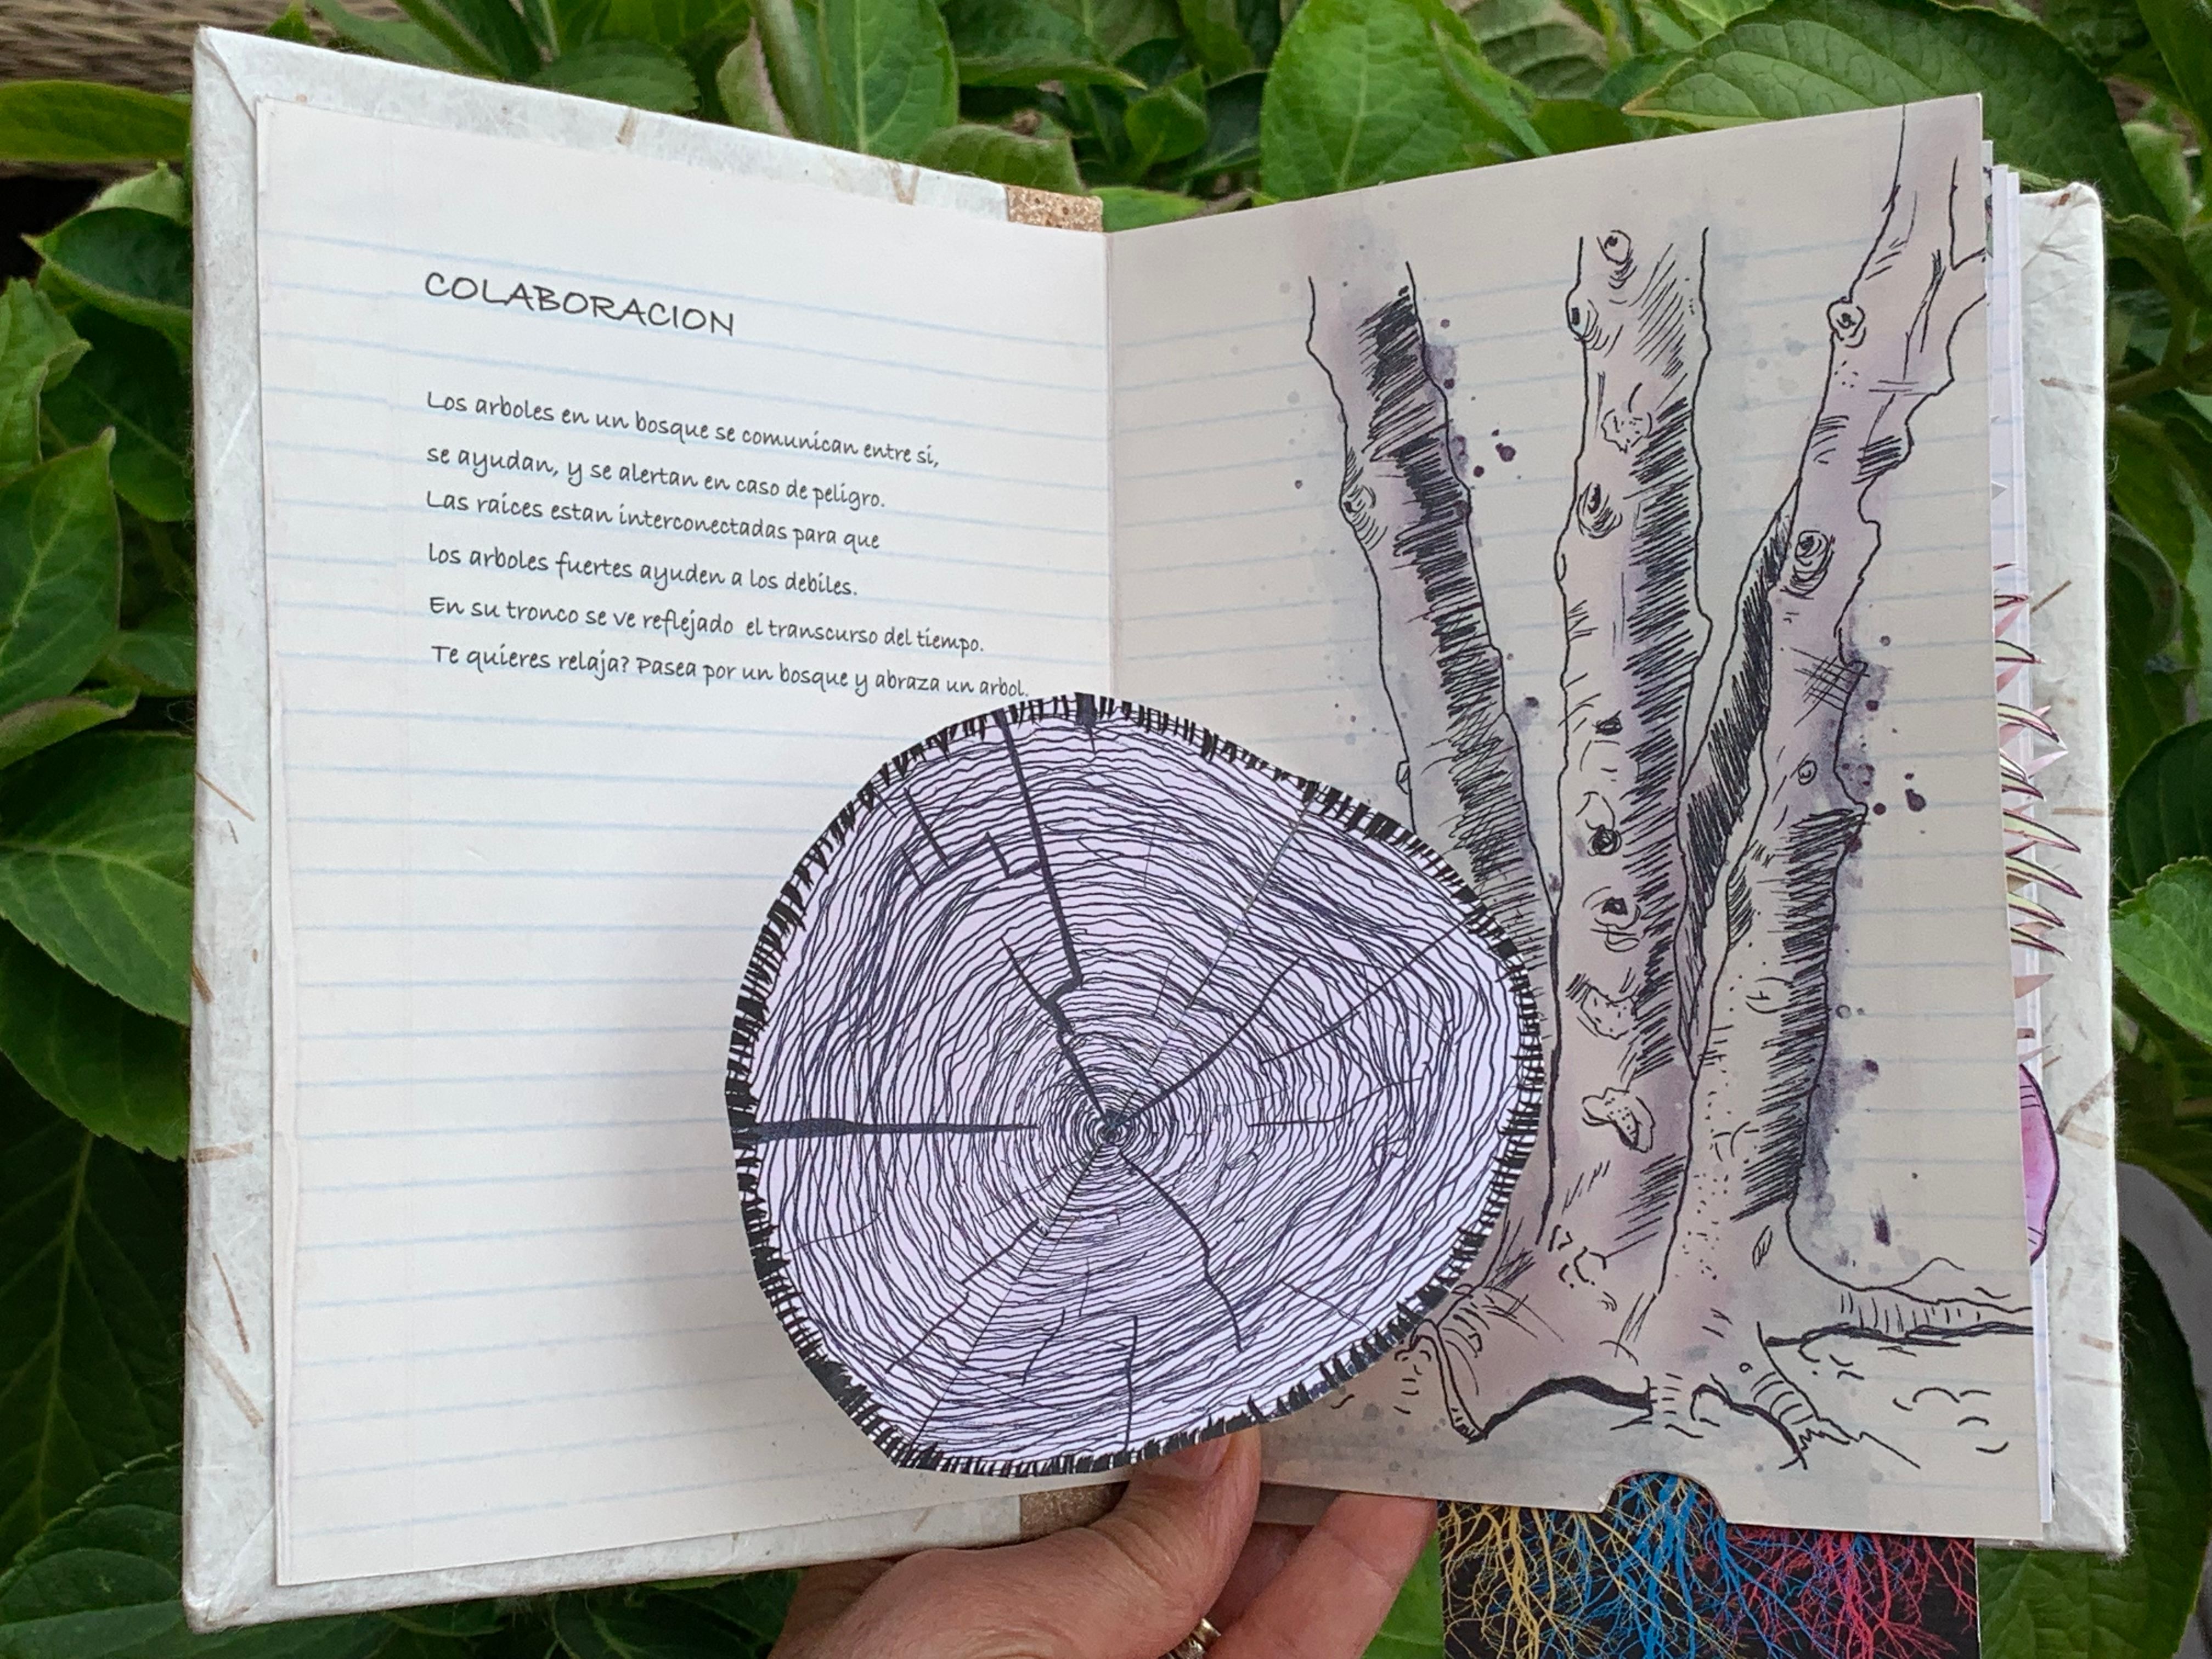 COLABORACION
Los arboles en un bosque se comunican entre si,
se ayudan, y se alertan en caso de peligro.
Las raices estan interconectadas para que
los arboles fuertes ayuden a los debiles.
En su tronco se ve reflejado el transcurso del tiempo.
Te quieres relaja? Pasea por un bosque y abraza un arbol.